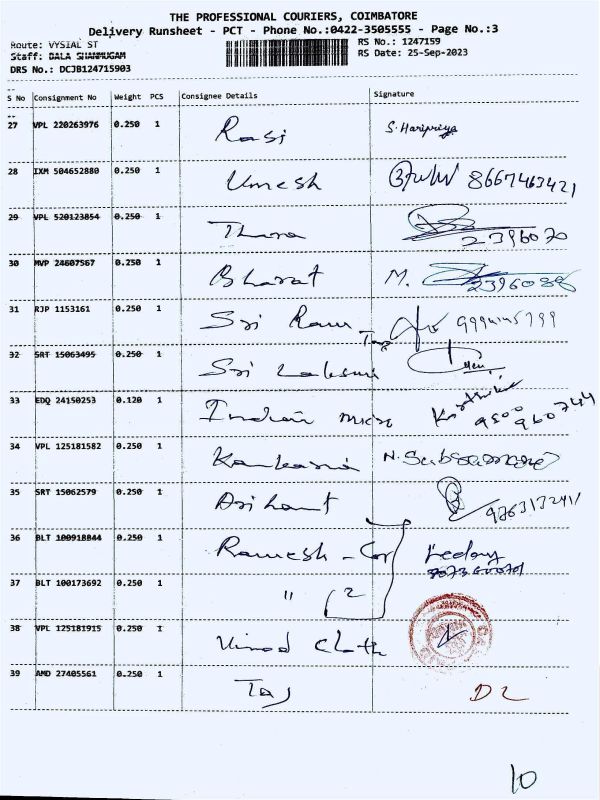 THE PROFESSIONAL COURIERS, COIMBATORE
Delivery Runsheet - PCT - Phone No.:0422-3505555 - Page No.:3
Route: VYSIAL ST
RS No.: 1247159
Staff: BALA SHANMUGAM
RS Date: 25-Sep-2023
DRS No.: DCJB124715903
S No Consignment No Weight PCS Consignee Details Signature
27 VPL 220263976 0.250 1 Rasi S. Haripriya
28 IXM 504652880 0.250 1 Umesh 8667463421
29 VPL 520123854 0.250 1 Thara 2396070
30 MVP 24607567 0.250 1 Bharat M. 2396088
31 RJP 1153161 0.250 1 Sri Ram
32 SRT 15063495 0.250 1 Sri Laksmi
33 EDQ 24150253 0.120 1 Indian micro Karthika 9500 960744
34 VPL 125181582 0.250 1 Kankaria
35 SRT 15062579 0.250 1 Arihant
36 BLT 100918844 0.250 1 Ramesh - Cor
37 BLT 100173692 0.250 1 " 2
38 VPL 125181915 0.250 1 Vinod Cloth
39 AMD 27405561 0.250 1 Taj D2
10